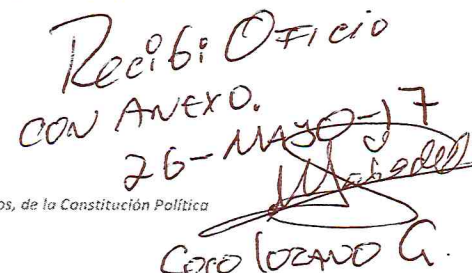 Recibí Oficio
CON ANEXO.
26-MAYO-17
os, de la Constitución Política
COCO LOZANO G.